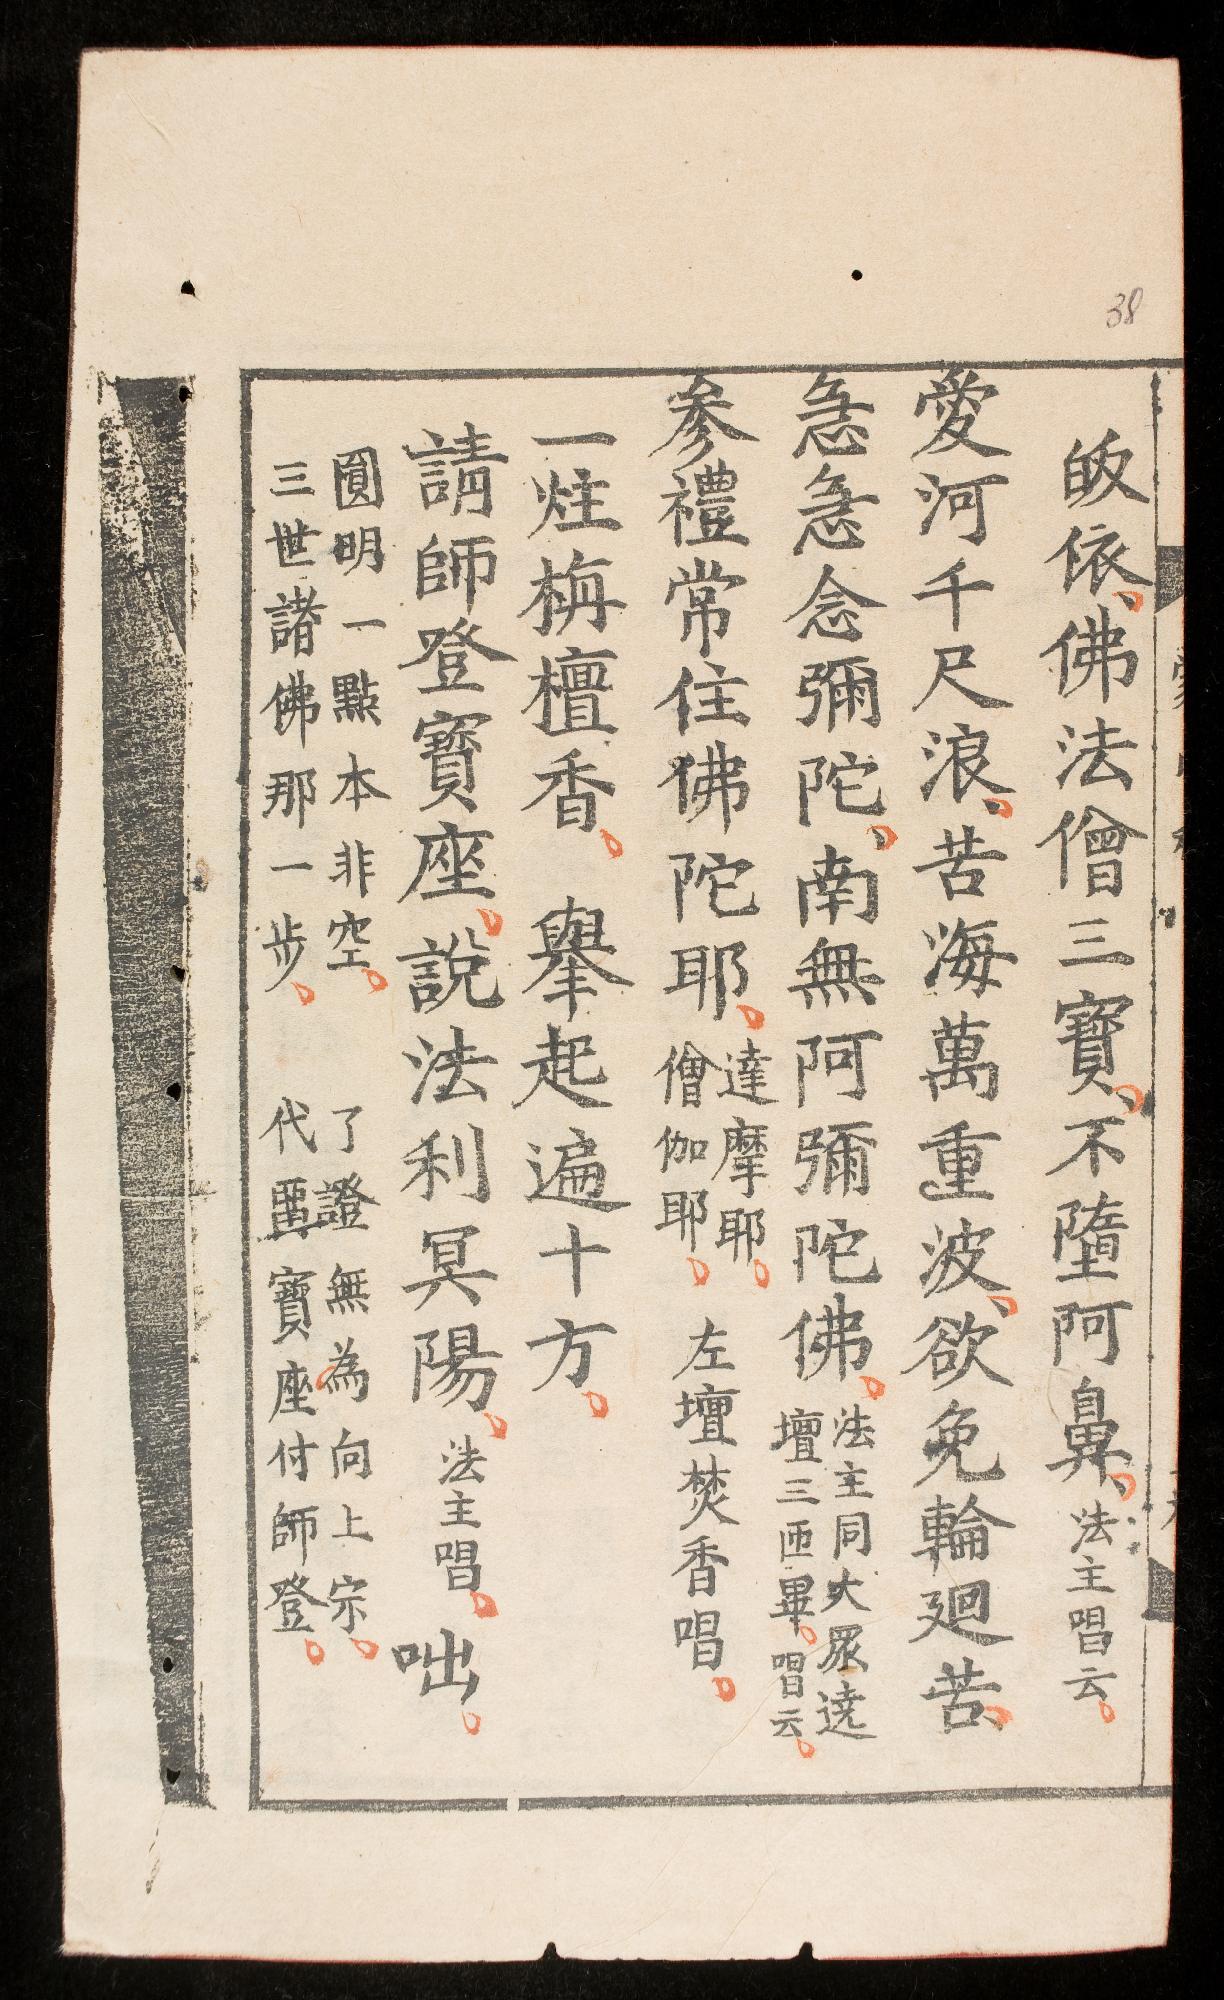 38
皈依、佛法僧三寶、不墮阿鼻、法主唱云。
愛河千尺浪、苦海萬重波、欲免輪廻苦、
急急念彌陀、南無阿彌陀佛、法主同大眾遶
壇三匝畢。唱云。
参禮常住佛陀耶。達摩耶。
僧伽耶。左壇焚香唱。
一炷栴檀香。舉起遍十方。
請師登寶座。說法利冥陽。法主唱。咄。
圓明一點本非空。了證無為向上宗。
三世諸佛那一步。代畢寶座付師登。